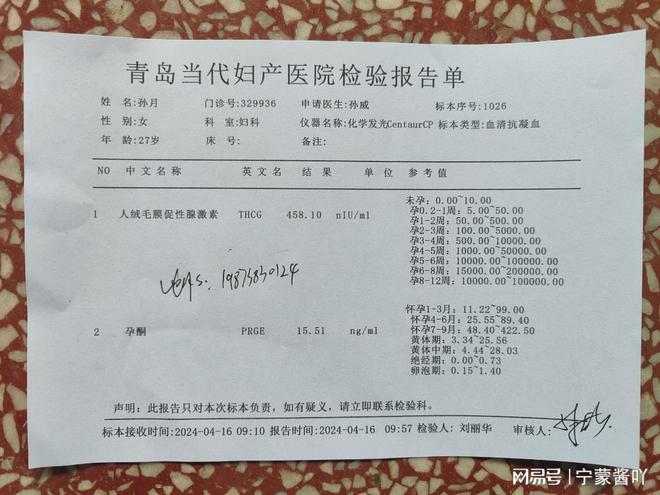 青岛当代妇产医院检验报告单
姓 名:孙月 门诊号:329936 申请医生:孙威 标本序号:1026
性 别:女 科 室:妇科 仪器名称:化学发光CentaurCP 标本类型:血清抗凝血
年 龄:27岁 床 号: 备注:
NO 中文名称 英文名 结 果 单 位 参考值
1 人绒毛膜促性腺激素 THCG 458.10 nIU/ml
未孕: 0.00~10.00
孕0.2-1周: 5.00~50.00
孕1-2周: 50.00~500.00
孕2-3周: 100.00~5000.00
孕3-4周: 500.00~10000.00
孕4-5周: 1000.00~50000.00
孕5-6周: 10000.00~100000.00
孕6-8周: 15000.00~200000.00
孕8-12周: 10000.00~100000.00
19875830124
2 孕酮 PRGE 15.51 ng/ml
怀孕1-3月: 11.22~99.00
怀孕4-6月: 25.55~89.40
怀孕7-9月: 48.40~422.50
黄体期: 3.34~25.56
黄体中期: 4.44~28.03
绝经期: 0.00~0.73
卵泡期: 0.15~1.40
声明: 此报告只对本次标本负责, 如有疑义, 请立即联系检验科。
标本接收时间:2024-04-16 09:10 报告时间:2024-04-16 09:57 检验人: 刘丽华 审核人:
网易号 | 宁蒙酱吖